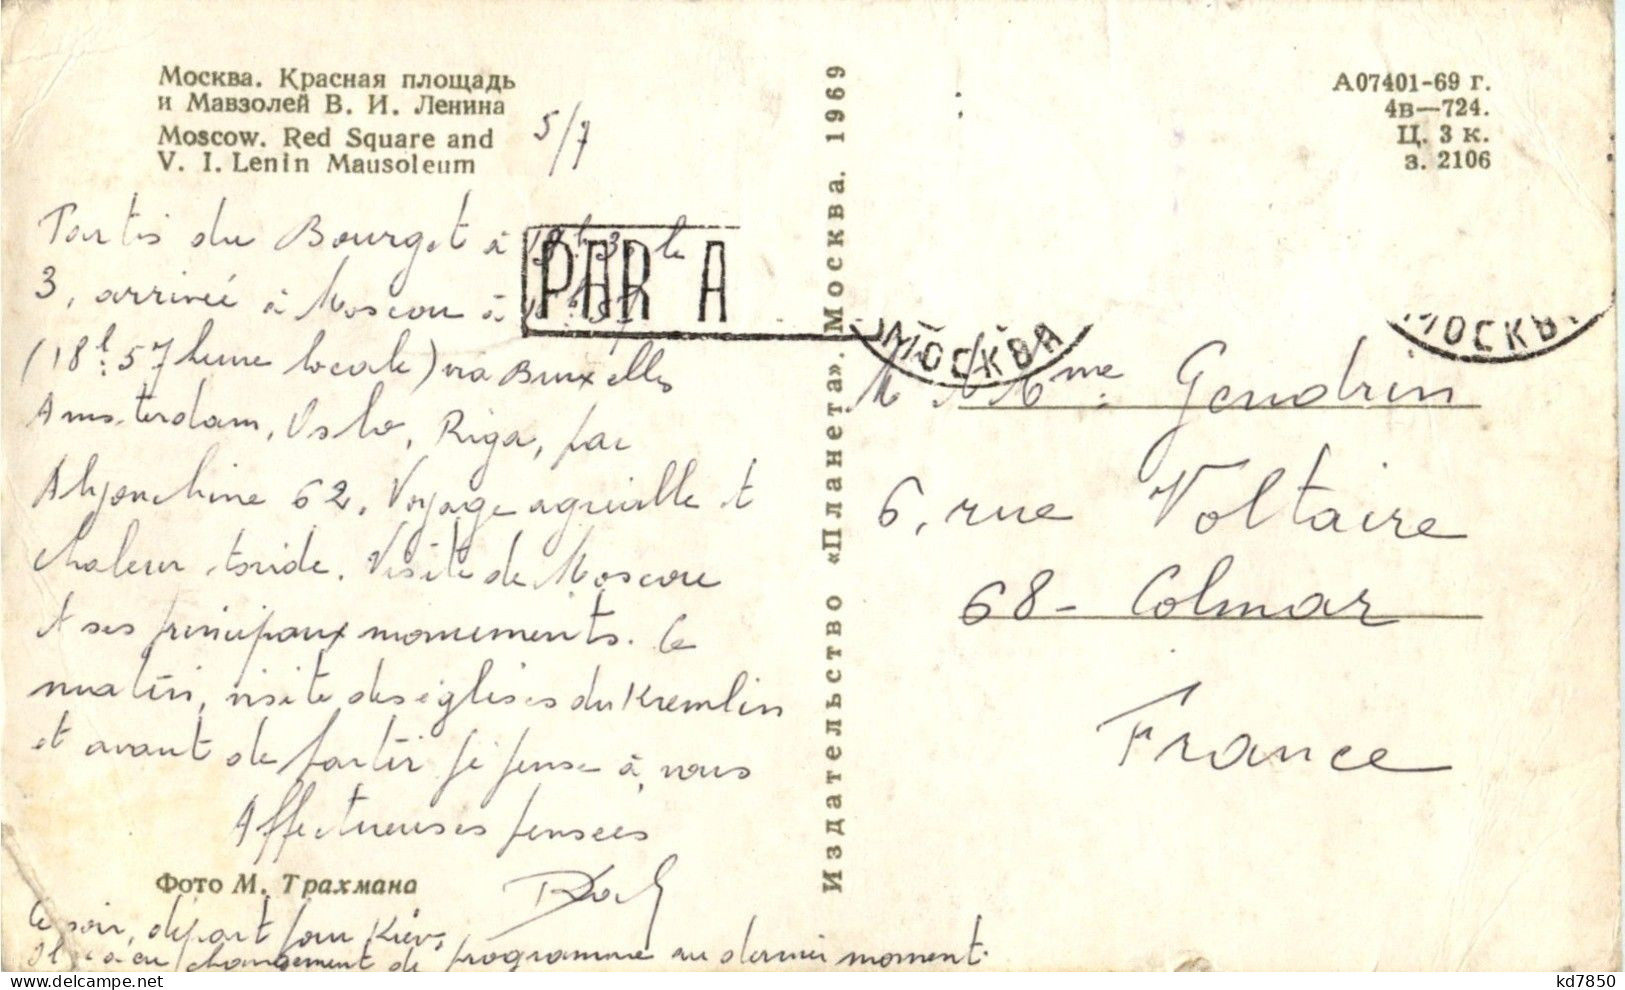 Москва. Красная площадь
и Мавзолей В. И. Ленина
Moscow. Red Square and
V. I. Lenin Mausoleum
5/7
Partis du Bourget à le
3, arrivée à Moscou à
(18h.57 heure locale) via Bruxelles
Amsterdam, Oslo, Riga, par
62. Voyage agréable et
chaleur torride. Visite de Moscou
et ses principaux monuments. Ce
matin, visite des églises du Kremlin
et avant de partir je pense à vous
Affectueuses pensées
Фото М. Трахмана
Ce soir, départ pour Kiev,
Il y a eu changement de programme au dernier moment.
Издательство «Планета». Москва. 1969
А07401-69 г.
4в—724.
Ц. 3 к.
з. 2106
PAR A
МОСКВА
МОСКВА
M et Mme Gendrin
6, rue Voltaire
68 - Colmar
France
delcampe.net
kd7850